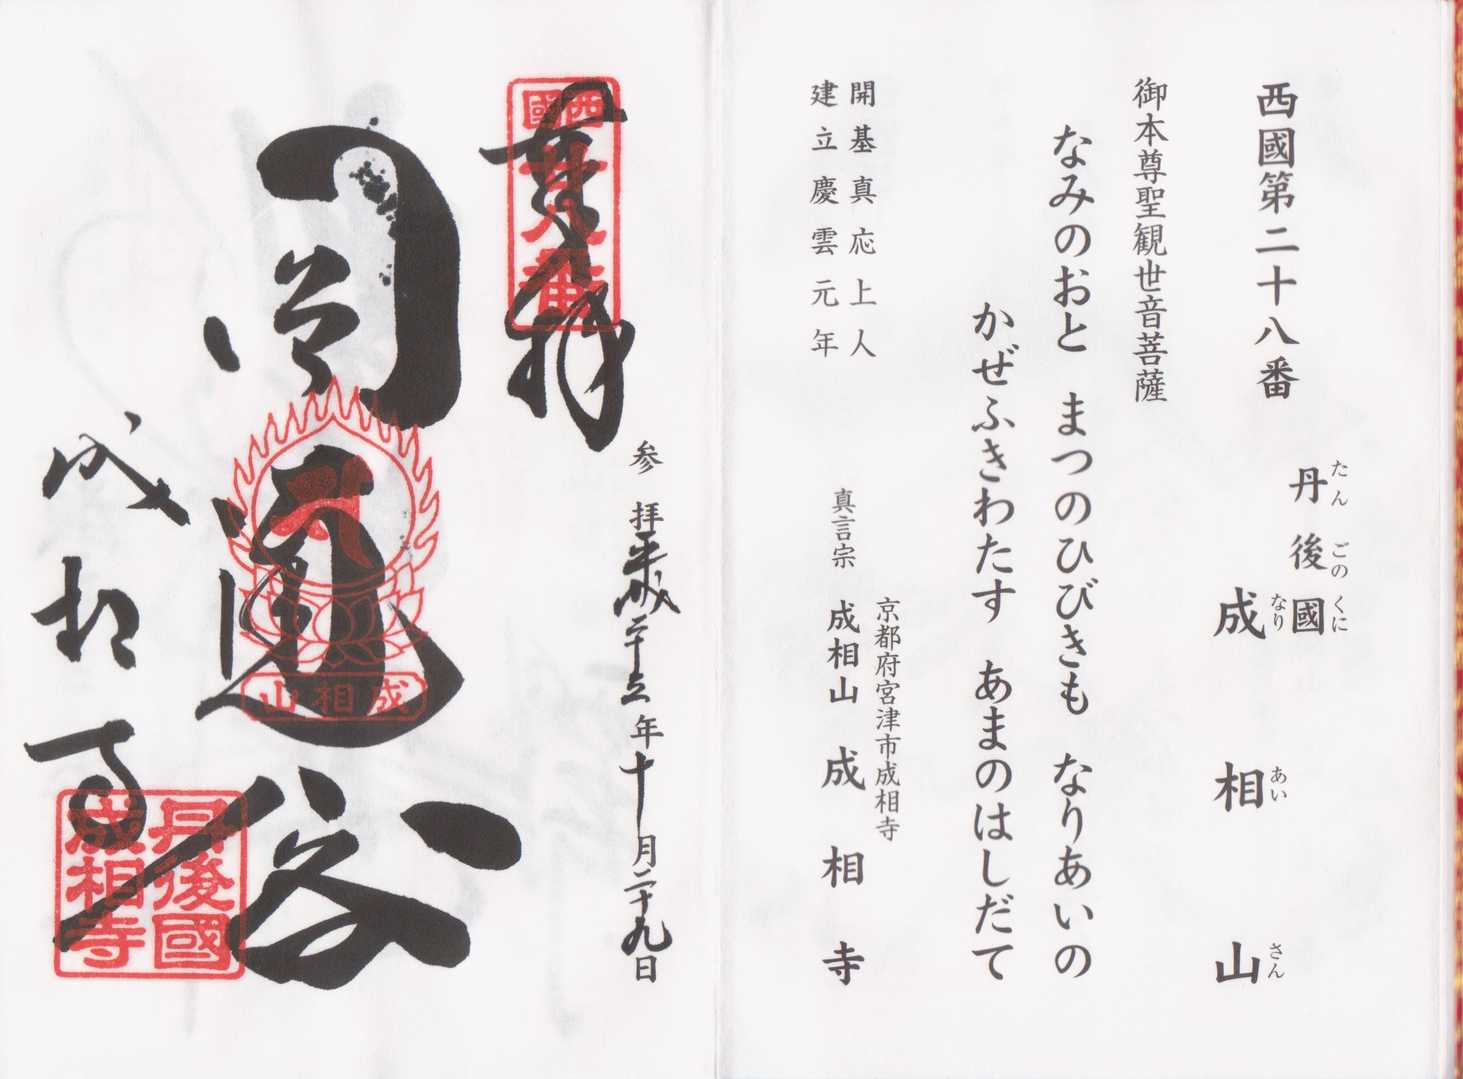 西國第二十八番
丹後國
たんごのくに
成相山
なりあいさん
御本尊聖観世音菩薩
なみのおと まつのひびきも なりあいの
かぜふきわたす あまのはしだて
開基真応上人
建立慶雲元年
京都府宮津市成相寺
真言宗 成相山 成相寺
参拝平成二十五年十月二十九日
奉拝
西國
廿八番
山相成
成相寺
丹後國
成相寺